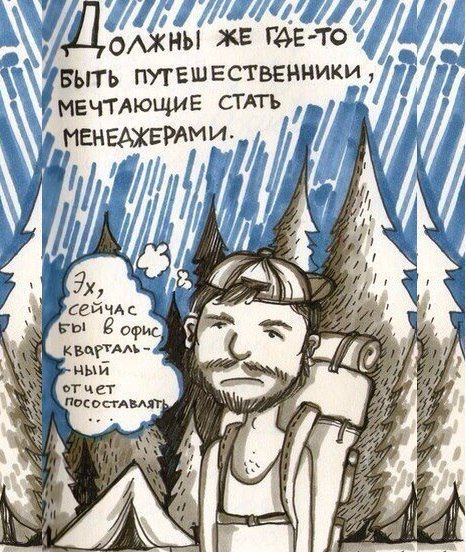 Должны же где-то
быть путешественники,
мечтающие стать
менеджерами.
Эх,
сейчас
бы в офис
кварталь-
-ный
отчет
посоставлять
...